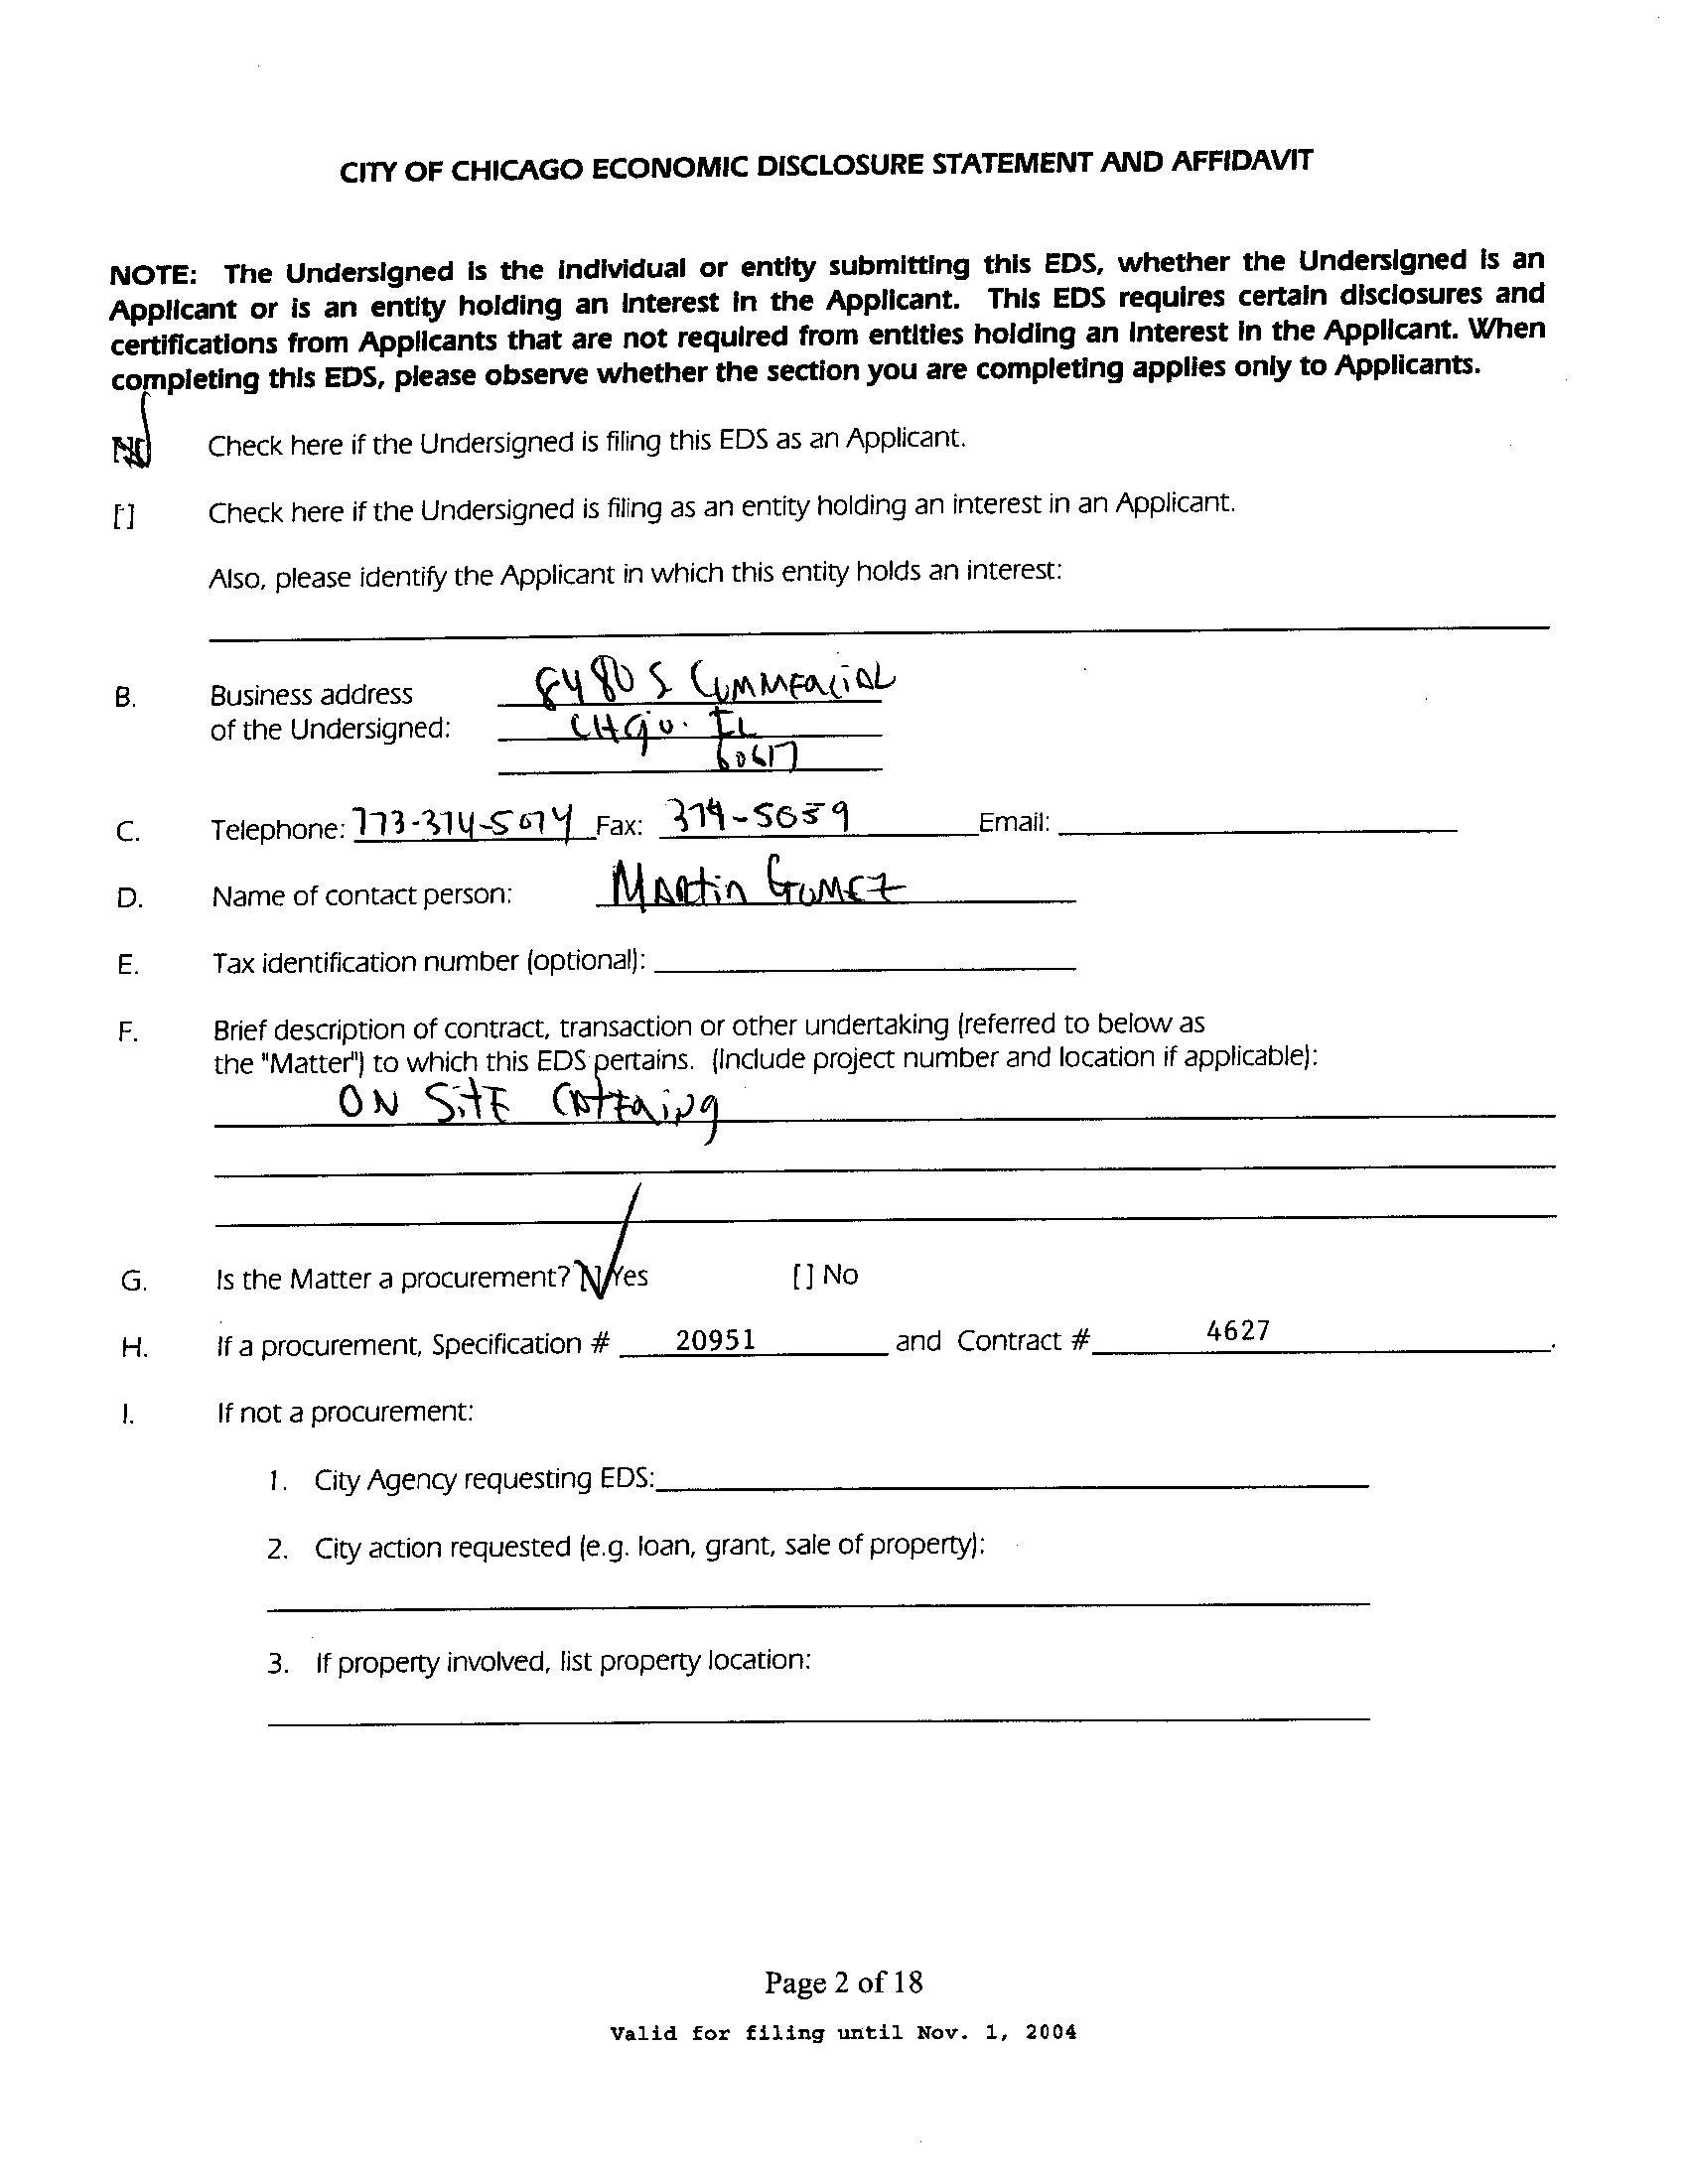 CITY OF CHICAGO ECONOMIC DISCLOSURE STATEMENT AND AFFIDAVIT
NOTE: The Undersigned is the individual or entity submitting this EDS, whether the Undersigned is an
Applicant or is an entity holding an interest in the Applicant. This EDS requires certain disclosures and
certifications from Applicants that are not required from entities holding an interest in the Applicant. When
completing this EDS, please observe whether the section you are completing applies only to Applicants.
Check here if the Undersigned is filing this EDS as an Applicant.
[ ] Check here if the Undersigned is filing as an entity holding an interest in an Applicant.
Also, please identify the Applicant in which this entity holds an interest:
B. Business address 8480 S COMMERCIAL
of the Undersigned: CHGO. IL
60617
C. Telephone: 773-374-5074 Fax: 374-5059 Email:
D. Name of contact person: MARtin GOMEZ
E. Tax identification number (optional):
F. Brief description of contract, transaction or other undertaking (referred to below as
the "Matter") to which this EDS pertains. (Include project number and location if applicable):
ON SitE CAtERiNg
G. Is the Matter a procurement? Yes [ ] No
H. If a procurement, Specification # 20951 and Contract # 4627.
I. If not a procurement:
1. City Agency requesting EDS:
2. City action requested (e.g. loan, grant, sale of property):
3. If property involved, list property location:
Page 2 of 18
Valid for filing until Nov. 1, 2004